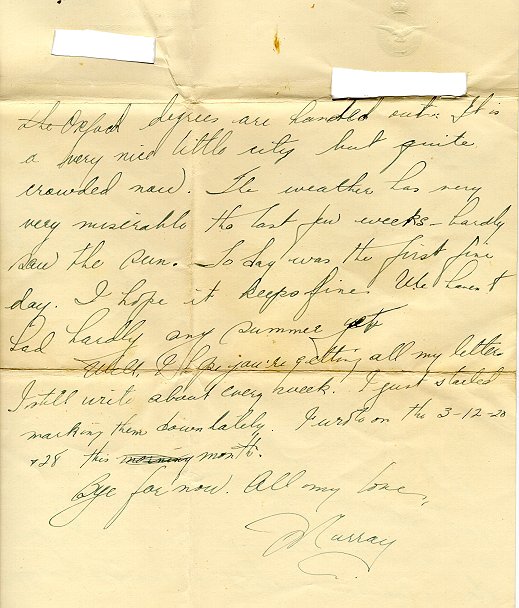 the Oxford degrees are handed out. It is
a very nice little city but quite
crowded now. The weather has very
very miserable the last few weeks - hardly
saw the sun. To day was the first fine
day. I hope it keeps fine. We haven't
had hardly any summer yet
Well I hope you're getting all my letters
I still write about every week. I just started
marking them down lately. I wrote on the 3-12-20
+28 this morning month.
Bye for now. All my love,
Murray